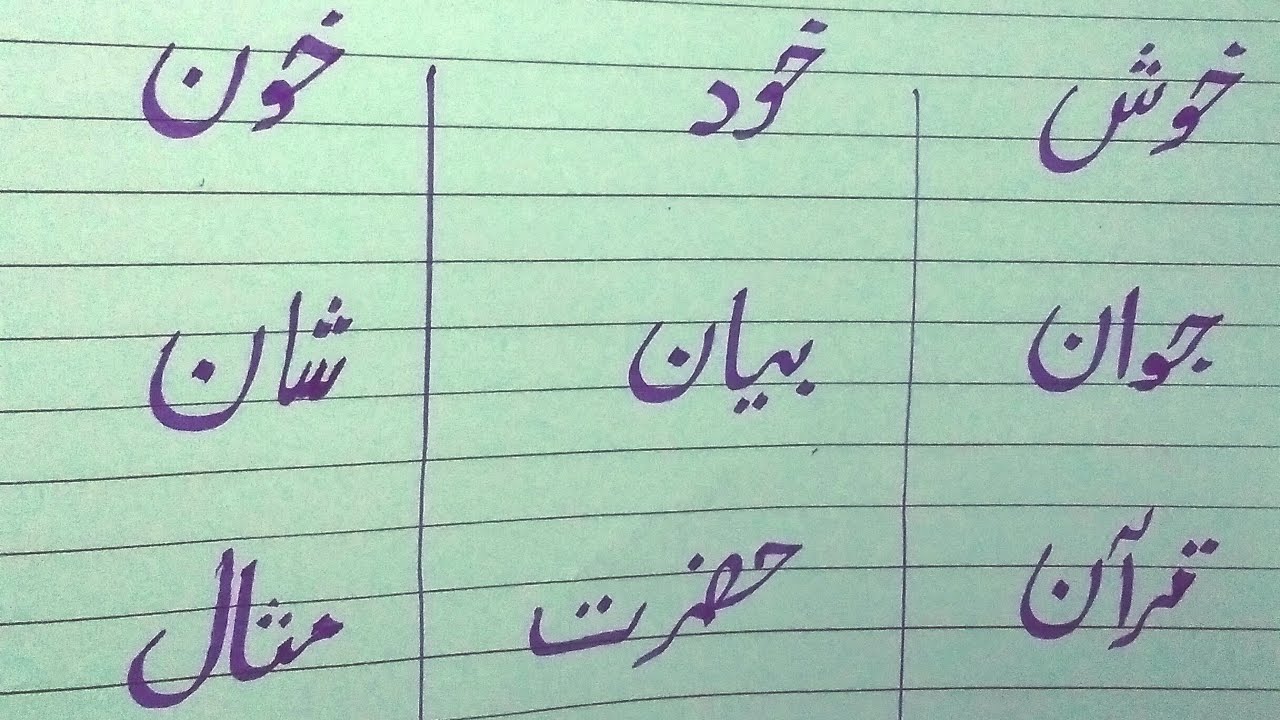 خوش خود خون
جوان بیان شان
قرآن حضرت مثال